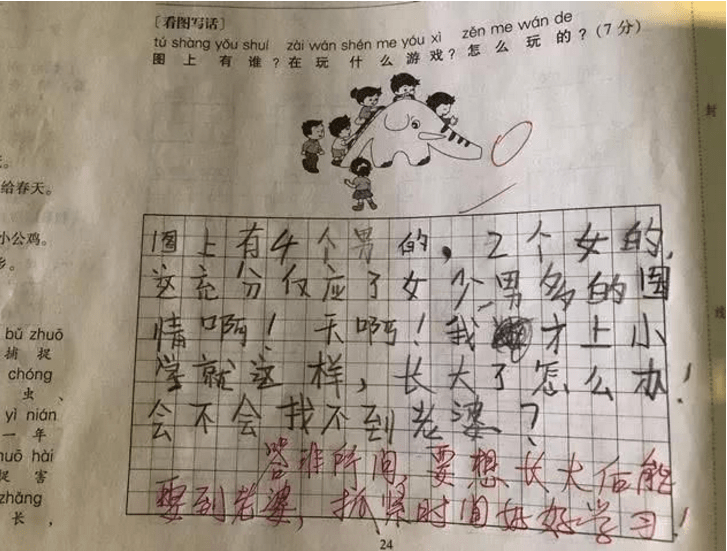 [看图写话]
tú shàng yǒu shuí zài wán shén me yóu xì zěn me wán de
图上有谁？在玩什么游戏？怎么玩的？(7分)
给春天。
小公鸡。
bǔ zhuō
捕捉
chóng
虫、
yì nián
一年
huō hài
捉害
zhǎng
长，
图上有4个男的，2个女的，
这充分仅应了女少男多的国
情啊！天啊！我才上小
学就这样，长大了怎么办！
会不会找不到老婆？
答非所问，要想长大后能
娶到老婆，抓紧时间好好学习！
24
封
线